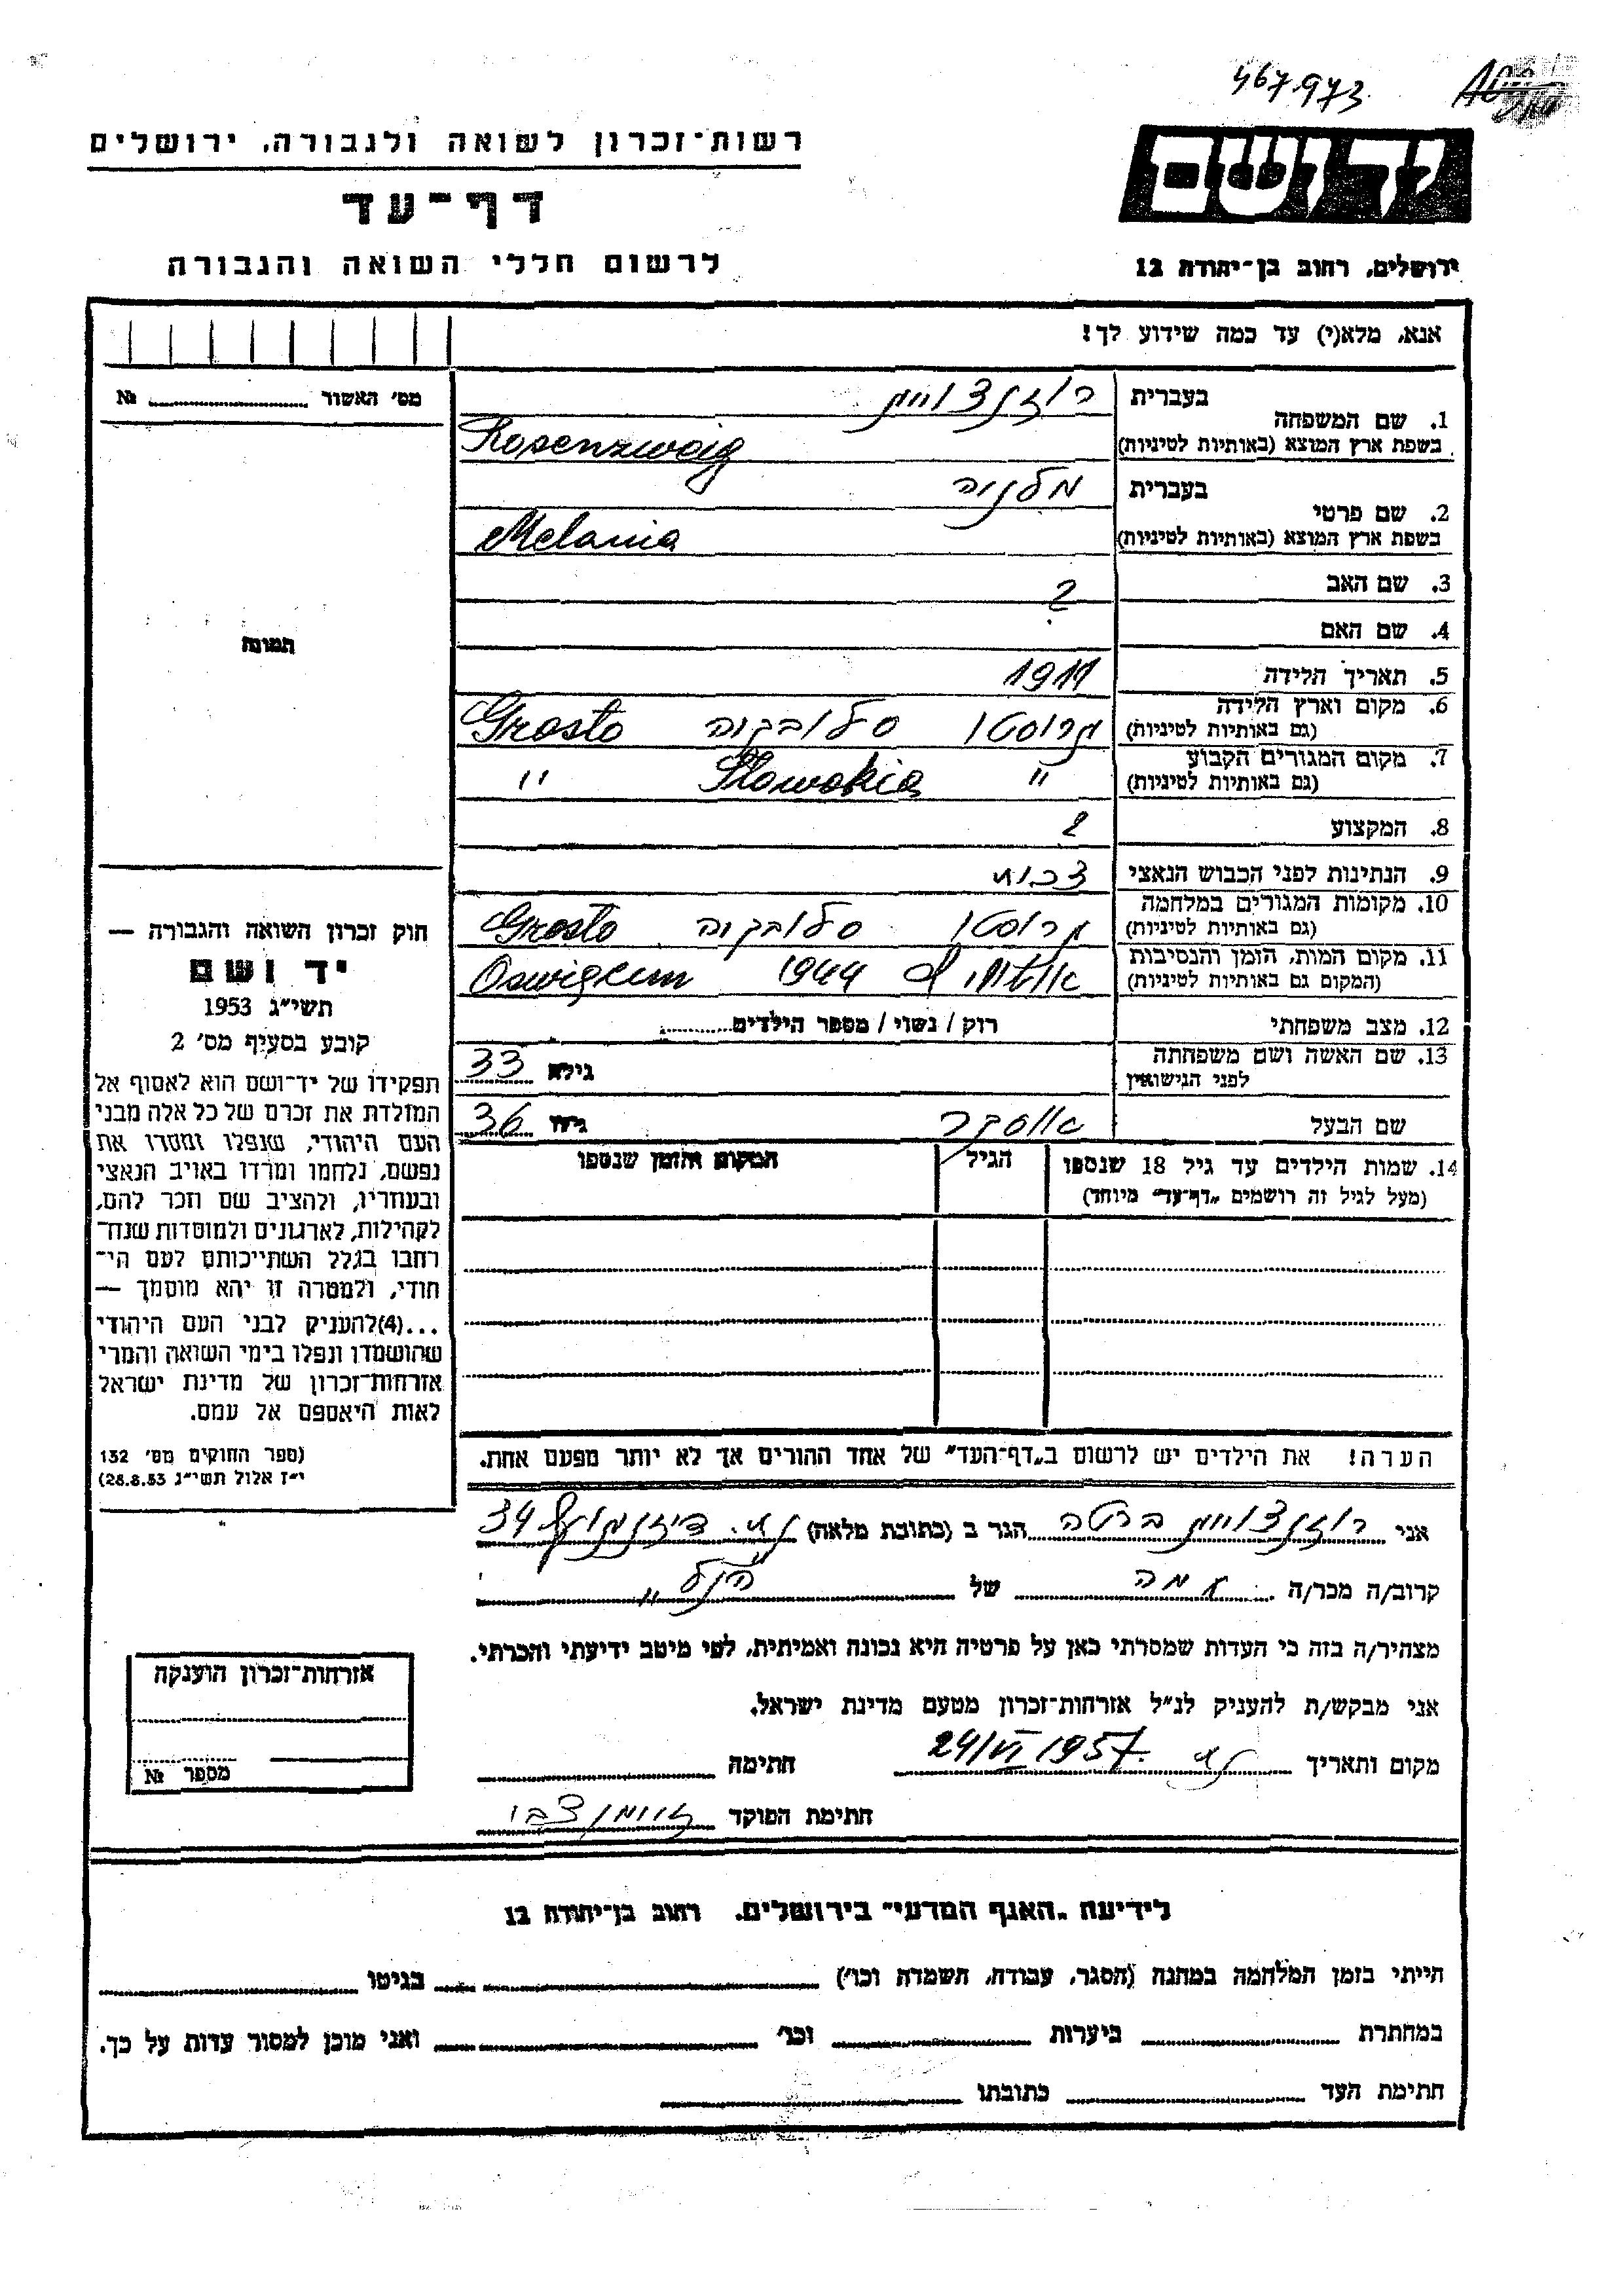 467.973
רשות-זכרון לשואה ולגבורה, ירושלים
יד ושם
דף-עד
לרשום חללי השואה והגבורה
ירושלים, רחוב בן-יהודה 12
אנא, מלא(י) עד כמה שידוע לך!
מס' האשור № 
1. שם המשפחה בעברית רוזנצווייג
בשפת ארץ המוצא (באותיות לטיניות) Rosenzweig
2. שם פרטי בעברית מלניה
בשפת ארץ המוצא (באותיות לטיניות) Melania
3. שם האב ?
4. שם האם
תמונה
5. תאריך הלידה 1911
6. מקום וארץ הלידה (גם באותיות לטיניות) גרוסטו סלובקיה Grosto
7. מקום המגורים הקבוע (גם באותיות לטיניות) " Slowakia "
8. המקצוע ?
9. הנתינות לפני הכבוש הנאצי צ'כית
10. מקומות המגורים במלחמה (גם באותיות לטיניות) גרוסטו סלובקיה Grosto
11. מקום המות, הזמן והנסיבות (המקום גם באותיות לטיניות) 1944 Oswięcim
12. מצב משפחתי רוק / נשוי / מספר הילדים
13. שם האשה ושם משפחתה לפני הנישואין גילה 33
שם הבעל אוסקר גילו 36
14. שמות הילדים עד גיל 18 שנספו הגיל המקום והזמן שנספו
(מעל לגיל זה רושמים "דף-עד" מיוחד)
חוק זכרון השואה והגבורה —
יד ושם
תשי"ג 1953
קובע בסעיף מס' 2
תפקידו של יד-ושם הוא לאסוף אל
המולדת את זכרם של כל אלה מבני
העם היהודי, שנפלו ומסרו את
נפשם, נלחמו ומרדו באויב הנאצי
ובעוזריו, ולהציב שם וזכר להם,
לקהילות, לארגונים ולמוסדות שנח-
רבו בגלל השתייכותם לעם הי-
הודי, ולמטרה זו יהא מוסמך —
...(4)להעניק לבני העם היהודי
שהושמדו ונפלו בימי השואה והמרי
אזרחות-זכרון של מדינת ישראל
לאות היאספם אל עמם.
(ספר החוקים מס' 132
י"ז אלול תשי"ג 28.8.53)
הערה! את הילדים יש לרשום ב"דף-העד" של אחד ההורים אך לא יותר מפעם אחת.
אני רוזנצווייג ברטה הגר ב (כתובת מלאה) ת"א. דיזנגוף 34
קרוב/ה מכר/ה של הנ"ל
מצהיר/ה בזה כי העדות שמסרתי כאן על פרטיה היא נכונה ואמיתית, לפי מיטב ידיעתי והכרתי.
אני מבקש/ת להעניק לנ"ל אזרחות-זכרון מטעם מדינת ישראל.
מקום ותאריך ת"א 24/VI 1957. חתימה
חתימת הפוקד
אזרחות-זכרון הוענקה
מספר №
לידיעת "האגף המדעי" בירושלים. רחוב בן-יהודה 12
הייתי בזמן המלחמה במחנה (הסגר, עבודה, השמדה וכו') בגיטו
במחתרת ביערות וכו' ואני מוכן למסור עדות על כך.
חתימת העד כתובתו